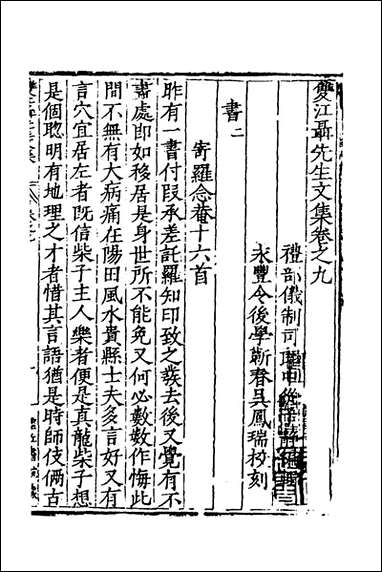 雙江聶先生文集卷之九
禮部儀制司郎中
永豐令後學蘄春吳鳳瑞校刻
書二
寄羅念菴十六首
昨有一書付段承差託羅知印致之發去後又覺有不
盡處即如移居是身世所不能免又何必數數作悔此
間不無有大病痛在陽田風水貴縣士夫多言好又有
言穴宜居左者既信柴子主人樂者便是真龍柴子想
是個聰明有地理之才者惜其言語猶是時師伎倆古